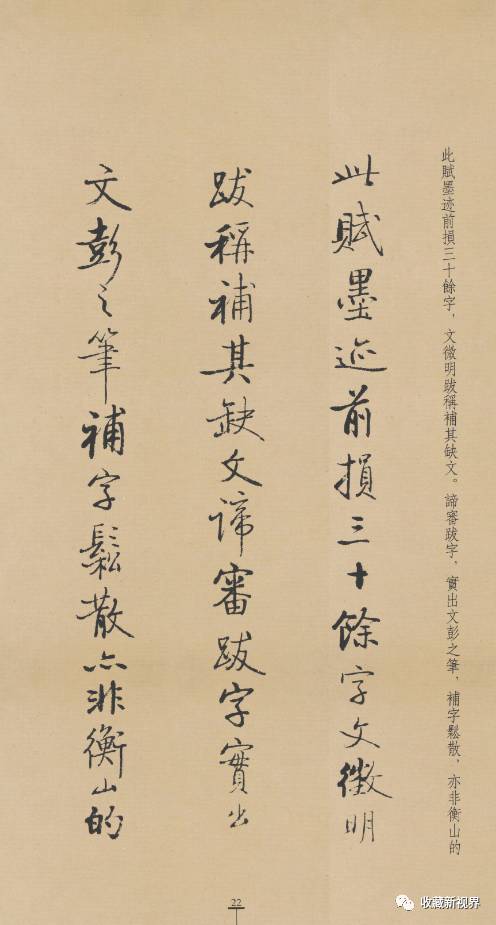 此賦墨迹前損三十餘字，文徵明跋稱補其缺文。諦審跋字，實出文彭之筆，補字鬆散，亦非衡山的
此賦墨迹前損三十餘字文徵明
跋稱補其缺文諦審跋字實出
文彭之筆補字鬆散亦非衡山的
22
收藏新视界